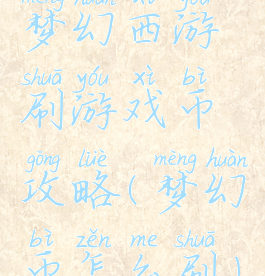 mèng huàn xī yóu
梦幻西游
shuā yóu xì bì
刷游戏币
gōng lüè mèng huàn
攻略(梦幻
bì zěn me shuā
币怎么刷)